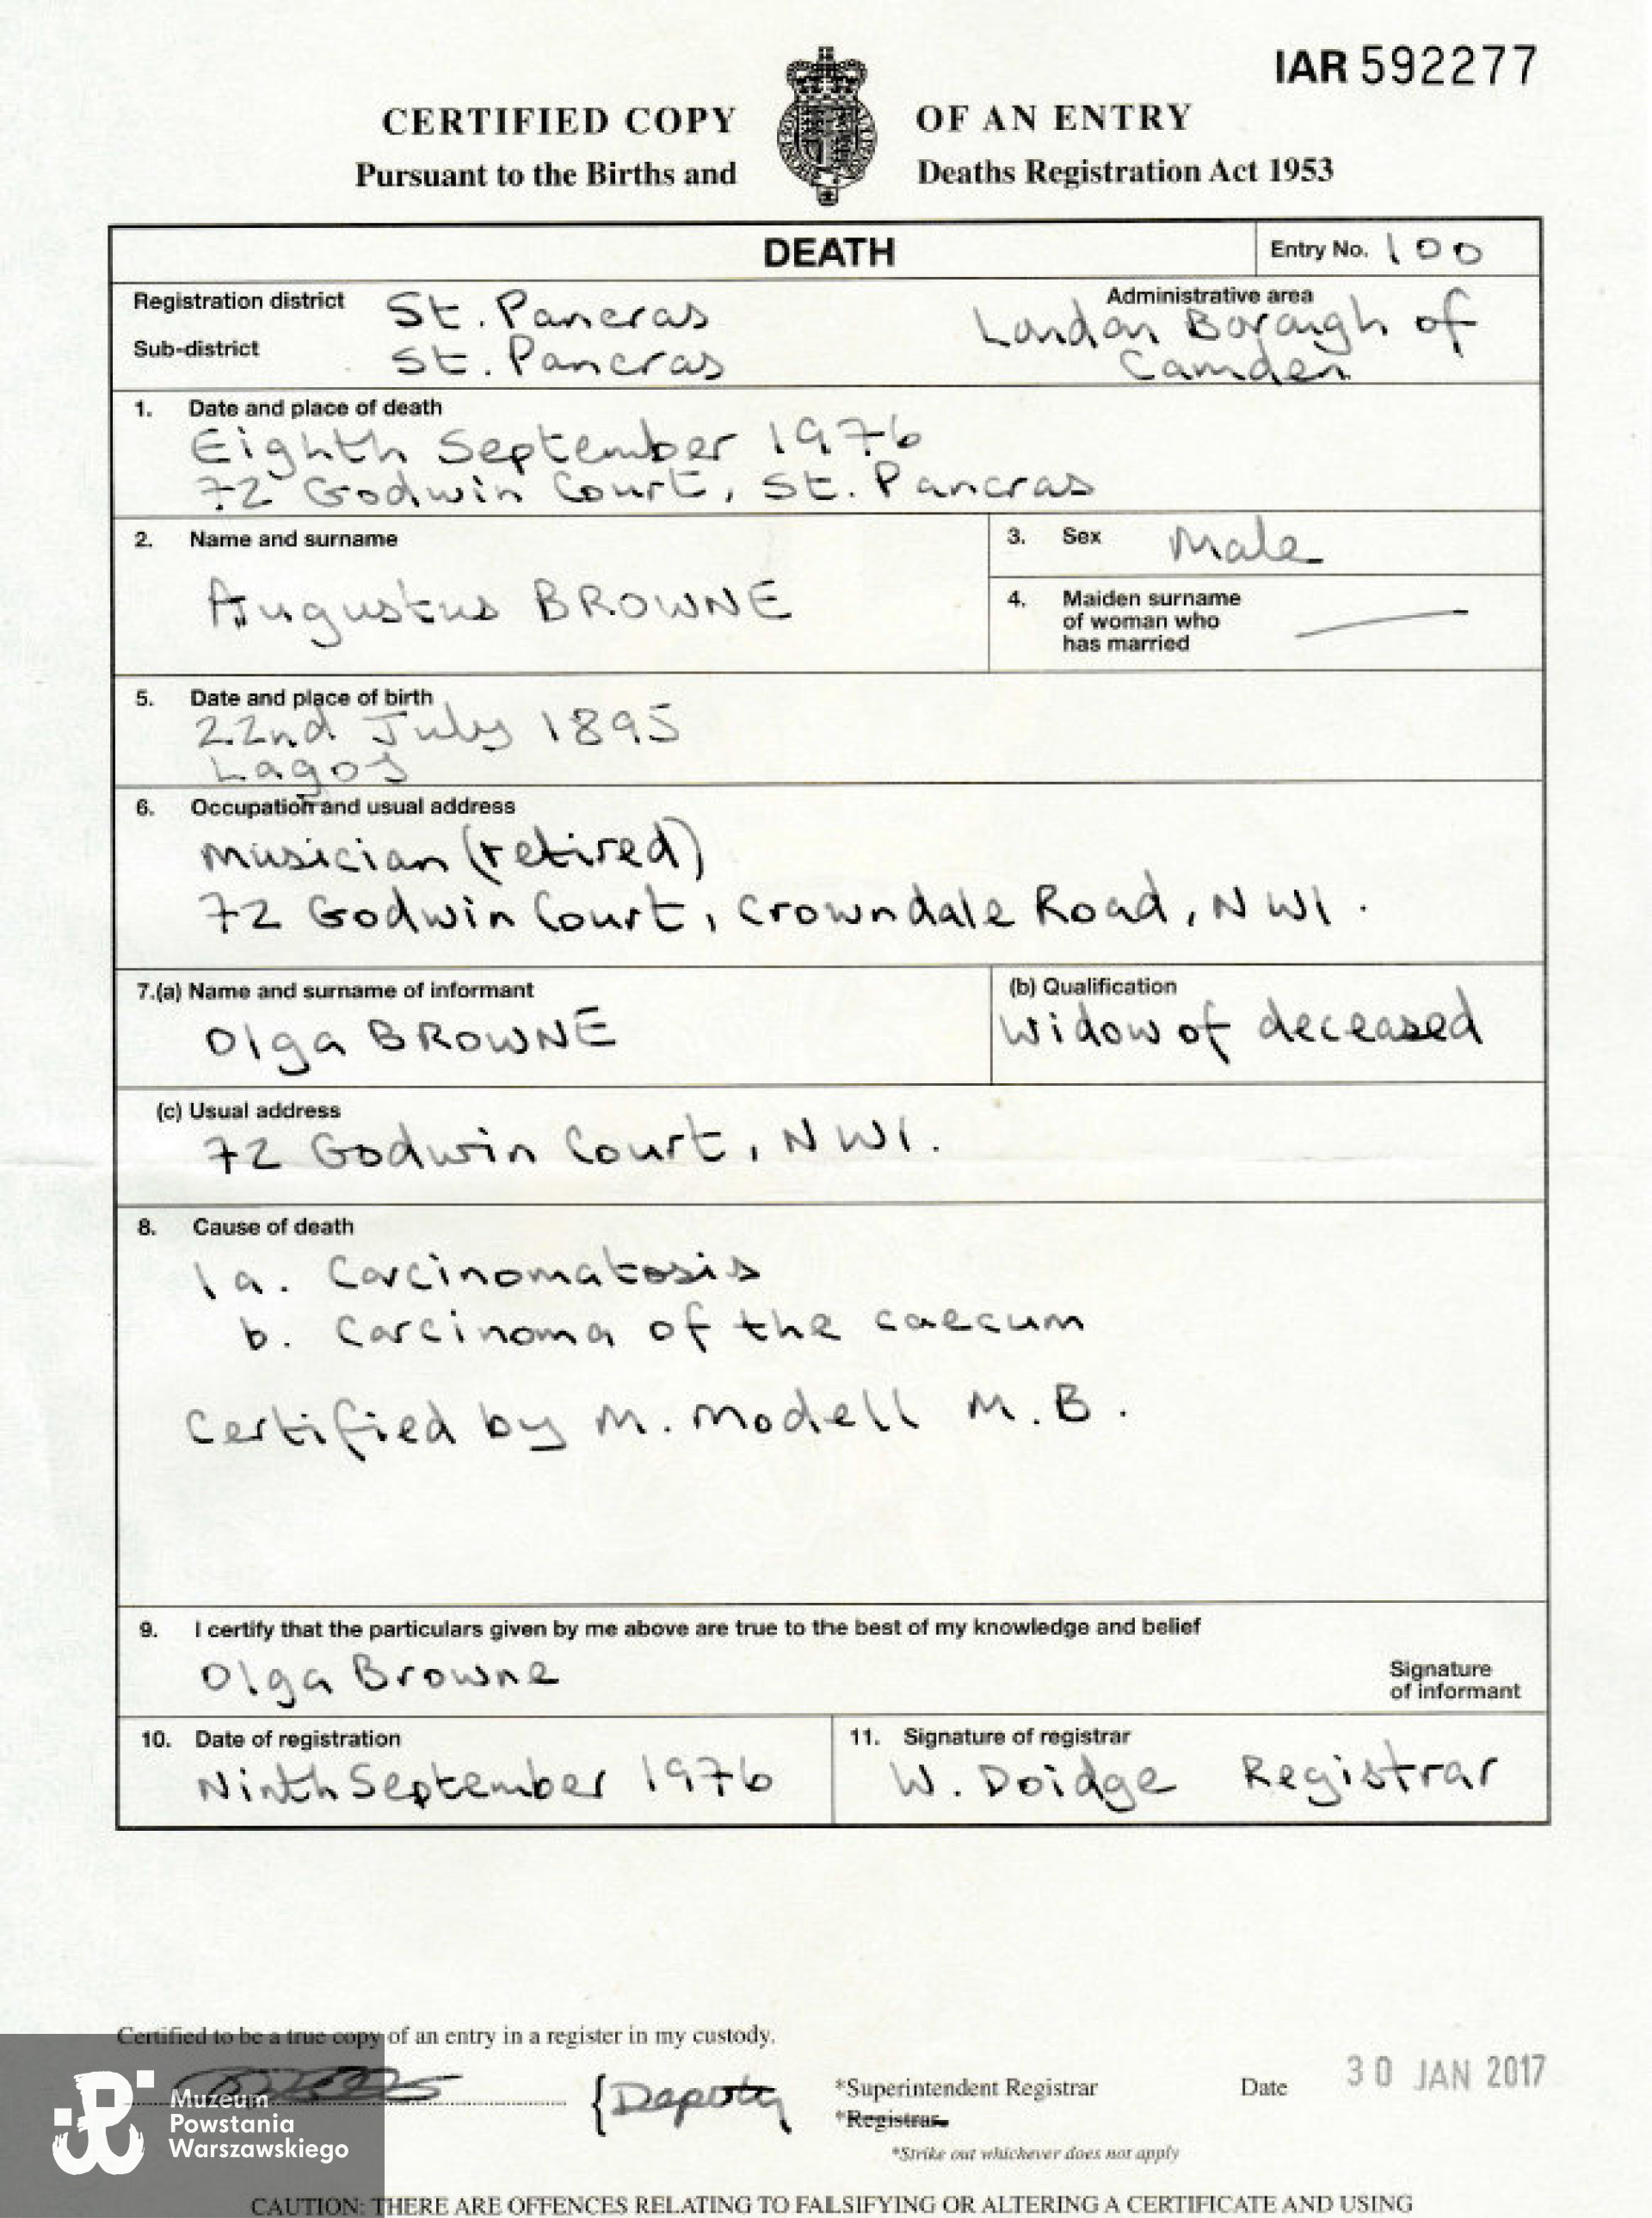 IAR 592277
CERTIFIED COPY OF AN ENTRY
Pursuant to the Births and Deaths Registration Act 1953
DEATH
Entry No. 100
Registration district St. Pancras
Administrative area
Sub-district St. Pancras
London Borough of
Camden
1. Date and place of death
Eighth September 1976
72 Godwin Court, St. Pancras
2. Name and surname
Augustus BROWNE
3. Sex Male
4. Maiden surname
of woman who
has married
5. Date and place of birth
22nd July 1895
Lagos
6. Occupation and usual address
Musician (retired)
72 Godwin Court, Crowndale Road, NW1.
7.(a) Name and surname of informant
Olga BROWNE
(b) Qualification
Widow of deceased
(c) Usual address
72 Godwin Court, NW1.
8. Cause of death
1a. Carcinomatosis
b. Carcinoma of the caecum
Certified by M. Modell M.B.
9. I certify that the particulars given by me above are true to the best of my knowledge and belief
Olga Browne
Signature
of informant
10. Date of registration
Ninth September 1976
11. Signature of registrar
W. Doidge Registrar
Certified to be a true copy of an entry in a register in my custody.
{Deputy
*Superintendent Registrar
*Registrar
Date 30 JAN 2017
*Strike out whichever does not apply
Muzeum
Powstania
Warszawskiego
CAUTION: THERE ARE OFFENCES RELATING TO FALSIFYING OR ALTERING A CERTIFICATE AND USING